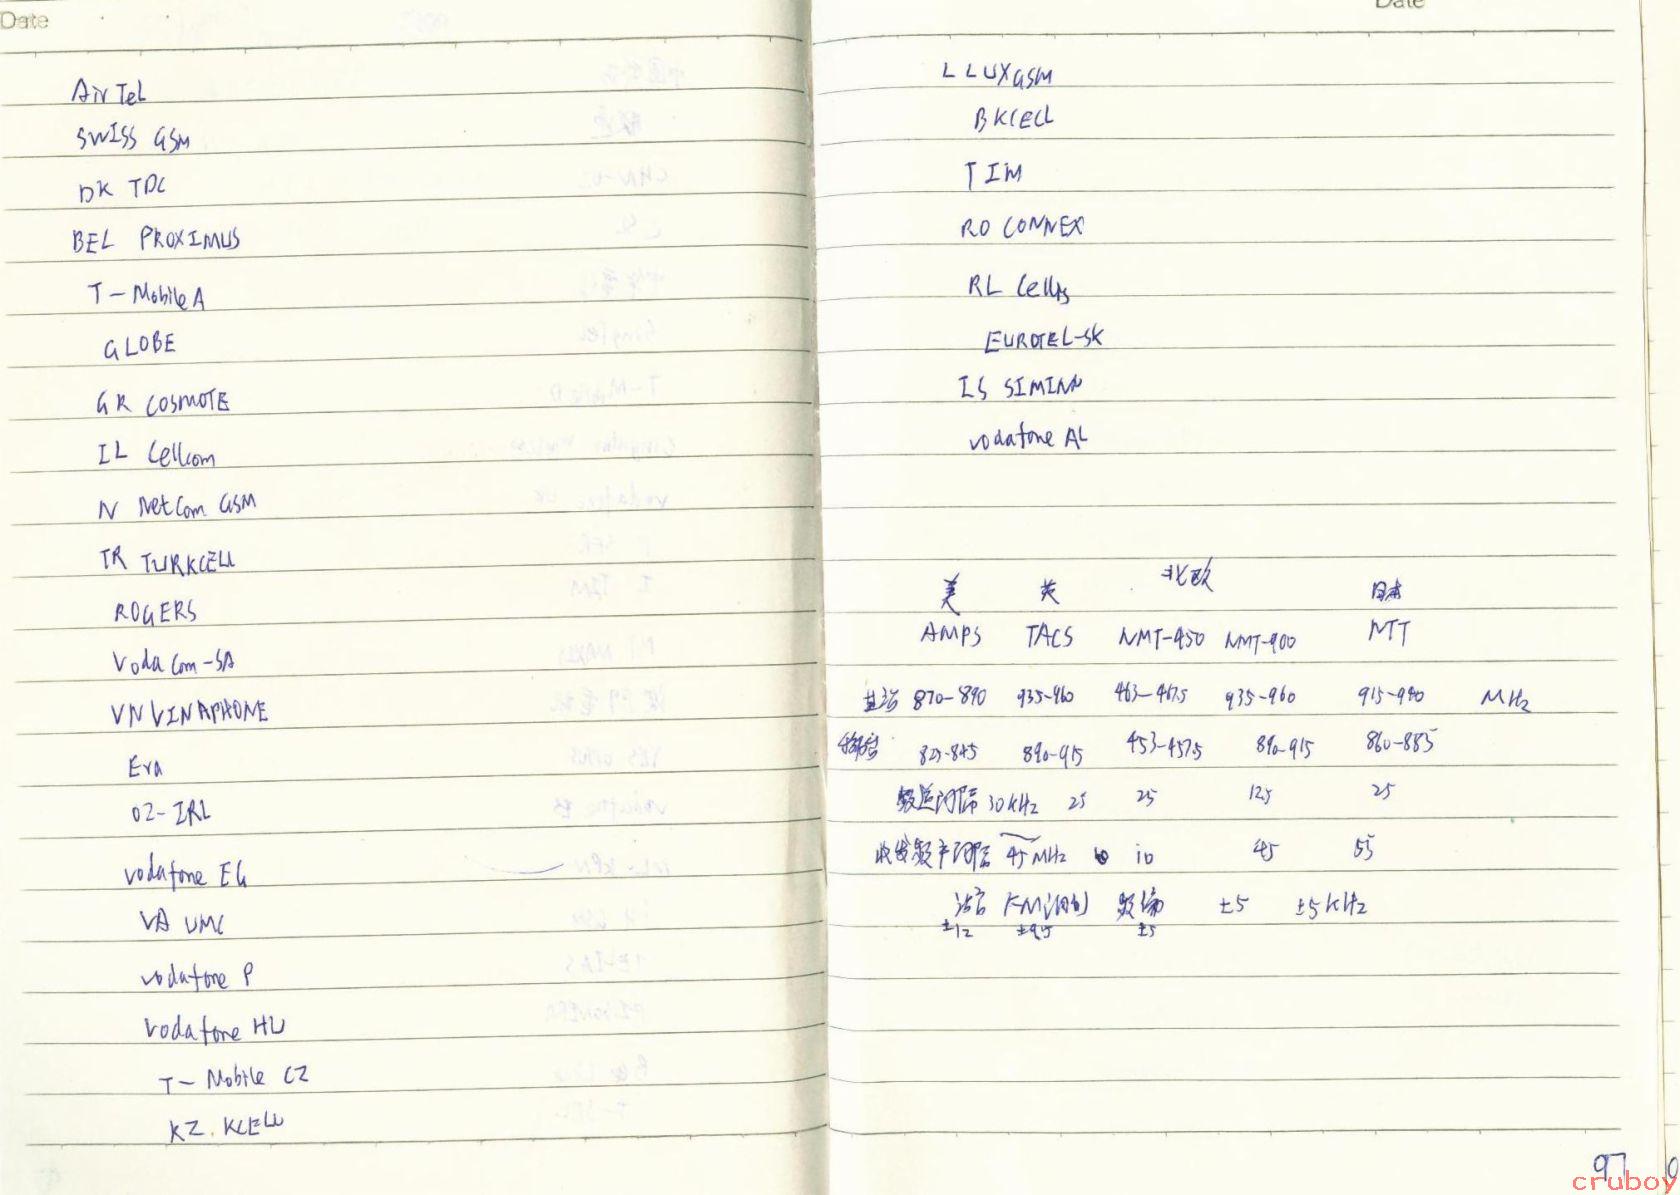 Date
AirTel
SWISS GSM
DK TDC
BEL PROXIMUS
T-Mobile A
GLOBE
GR COSMOTE
IL Cellcom
N NetCom GSM
TR TURKCELL
ROGERS
VodaCom-SA
VN VINAPHONE
Era
02-IRL
vodafone EG
UMC
vodafone P
Vodafone HU
T-Mobile CZ
KZ. KCELL
Date
L LUXGSM
BKCELL
TIM
RO CONNEX
RL Cellis
EUROTEL-SK
IS SIMINN
vodafone AL
美 英 北欧 日本
AMPS TACS NMT-450 NMT-900 NTT
基站 870-890 935-960 463-467.5 935-960 915-940 MHz
825-845 890-915 453-457.5 890-915 860-885
频道间隔 30KHz 25 25 12.5 25
收发频率间隔 45MHz 10 45 55
话音 FM调制 频偏 ±5 ±5KHz
±12 ±9.5 ±5
97
cruboy